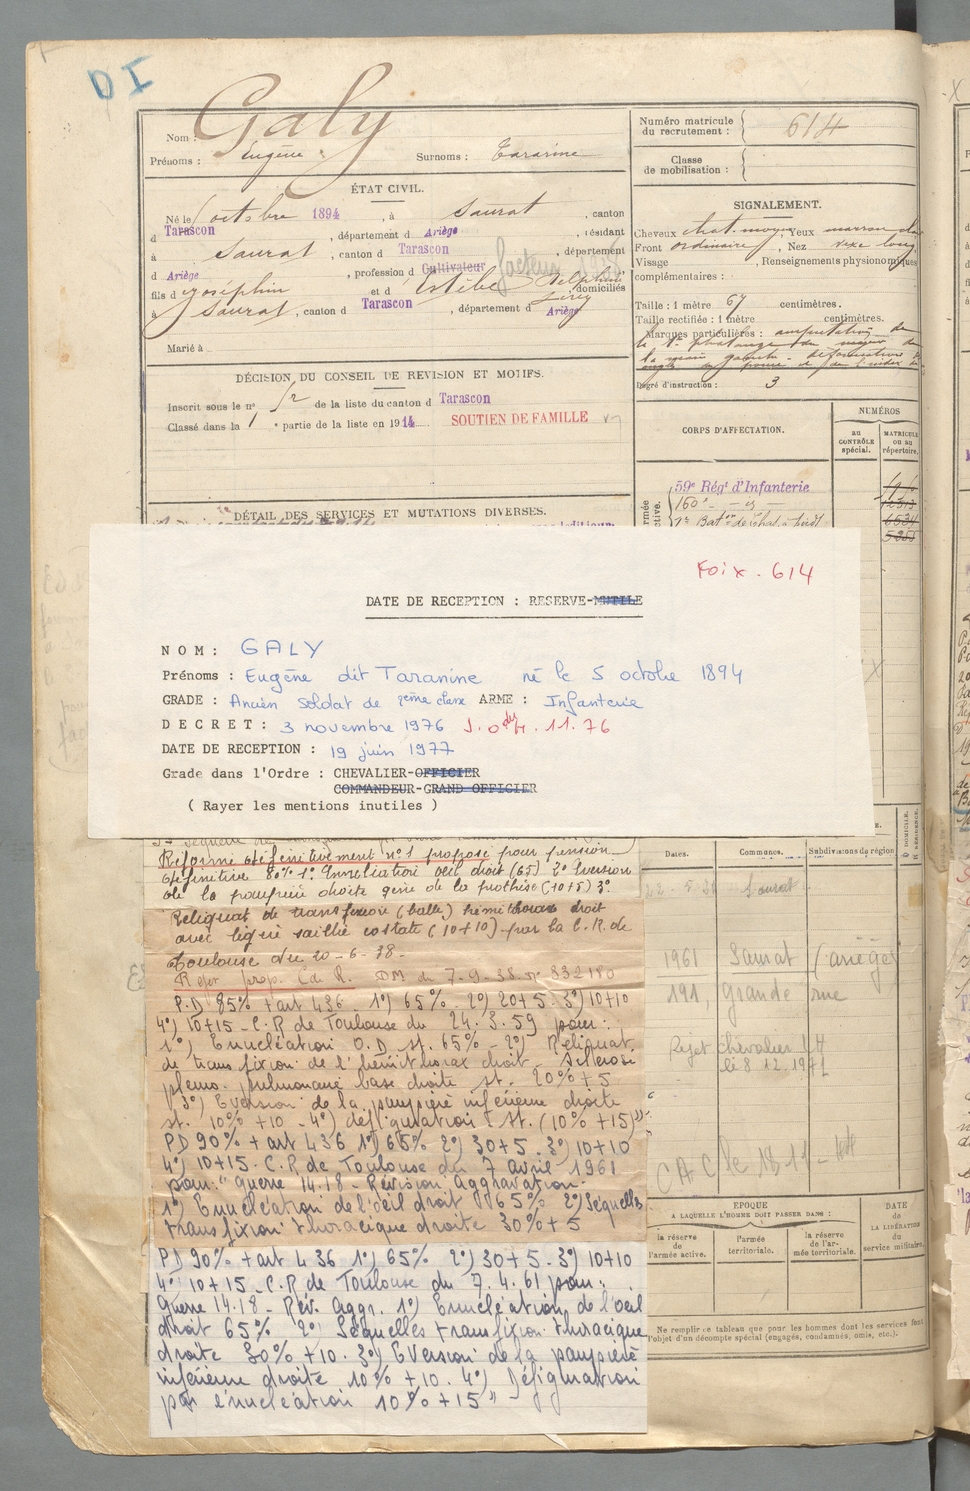 DI
Nom : Galy
Prénoms : Eugène Surnoms :
Numéro matricule du recrutement : 614
Classe de mobilisation :
ÉTAT CIVIL.
Né le 5 octobre 1894, à Saurat, canton
d Tarascon, département d Ariège, résidant
à Saurat, canton d Tarascon, département
d Ariège, profession d Cultivateur facteur
fils d Joséphin et d Estèbe Delphine domiciliés
à Saurat, canton d Tarascon, département d Ariège
Marié à
SIGNALEMENT.
Cheveux chat. moyen, Yeux marron
Front ordinaire, Nez vexe long
Visage , Renseignements physionomiques
complémentaires :
Taille : 1 mètre 67 centimètres.
Taille rectifiée : 1 mètre centimètres.
Marques particulières : amputation de
la 1e phalange du majeur de
la main gauche - déformation
Degré d'instruction : 3
DÉCISION DU CONSEIL DE REVISION ET MOTIFS.
Inscrit sous le n° 52 de la liste du canton d Tarascon
Classé dans la 1e partie de la liste en 1914 SOUTIEN DE FAMILLE
CORPS D'AFFECTATION.
NUMÉROS
au CONTRÔLE spécial.
MATRICULE ou au répertoire.
59e Régt d'Infanterie
160e - id -
6534
DÉTAIL DES SERVICES ET MUTATIONS DIVERSES.
Foix. 614
DATE DE RECEPTION : RESERVE-MUTILE
NOM : GALY
Prénoms : Eugène dit Taranine né le 5 octobre 1894
GRADE : Ancien soldat de 2ème classe ARME : Infanterie
DECRET : 3 novembre 1976 J.O du 4.11.76
DATE DE RECEPTION : 19 juin 1977
Grade dans l'Ordre : CHEVALIER-OFFICIER
COMMANDEUR-GRAND OFFICIER
( Rayer les mentions inutiles )
Réformé définitivement n°1 proposé pour pension
définitive 80% 1° énucléation oeil droit (65) 2° Eversion
de la paupière droite gêne de la prothèse (10+5) 3°
Reliquat de transfixion (balle) hémithorax droit
avec légère saillie costale (10+10) par la C.R. de
Toulouse du 20-6-38.
DM du 7-9-38. N° 832180
P.D 85% + art 436 1°) 65% 2°) 20+5 3°) 10+10
4°) 10+15 - C.R de Toulouse du 24.3.59 pour :
1°) Enucléation O.D st. 65% - 2°) Reliquat
de transfixion de l'hémithorax droit - Sclérose
pleuro-pulmonaire base droite st. 20% + 5
3°) Eversion de la paupière inférieure droite
st. 10% + 10 - 4°) défiguration st. (10% + 15)"
PD 90% + art 436 1°) 65% 2°) 30+5 3°) 10+10
4°) 10+15 - C.R de Toulouse du 7 Avril 1961
pour : "guerre 14.18 - Révision Aggravation.
1°) Enucléation de l'oeil droit 65% 2°) Séquelles
transfixion thoracique droite 30% + 5
PD 90% + art 436 1°) 65% 2°) 30+5 3°) 10+10
4°) 10+15 - C.R de Toulouse du 7.4.61 pour :
Guerre 14.18 - Rév. Aggr. 1°) Enucléation de l'oeil
droit 65% 2°) Séquelles transfixion thoracique
droite 30% +10. 3°) Eversion de la paupière
inférieure droite 10% +10. 4°) Défiguration
par énucléation 10% +15"
Dates. Communes. Subdivisions de région
D DOMICILE. R RÉSIDENCE.
Saurat
1961 Saurat (ariège)
191, grande rue
Rejet chevalier LH
le 8.12.1971
EPOQUE
A LAQUELLE L'HOMME DOIT PASSER DANS :
la réserve de l'armée active.
l'armée territoriale.
la réserve de l'armée territoriale.
DATE de LA LIBÉRATION du service militaire.
Ne remplir ce tableau que pour les hommes dont les services font
l'objet d'un décompte spécial (engagés, condamnés, omis, etc.).